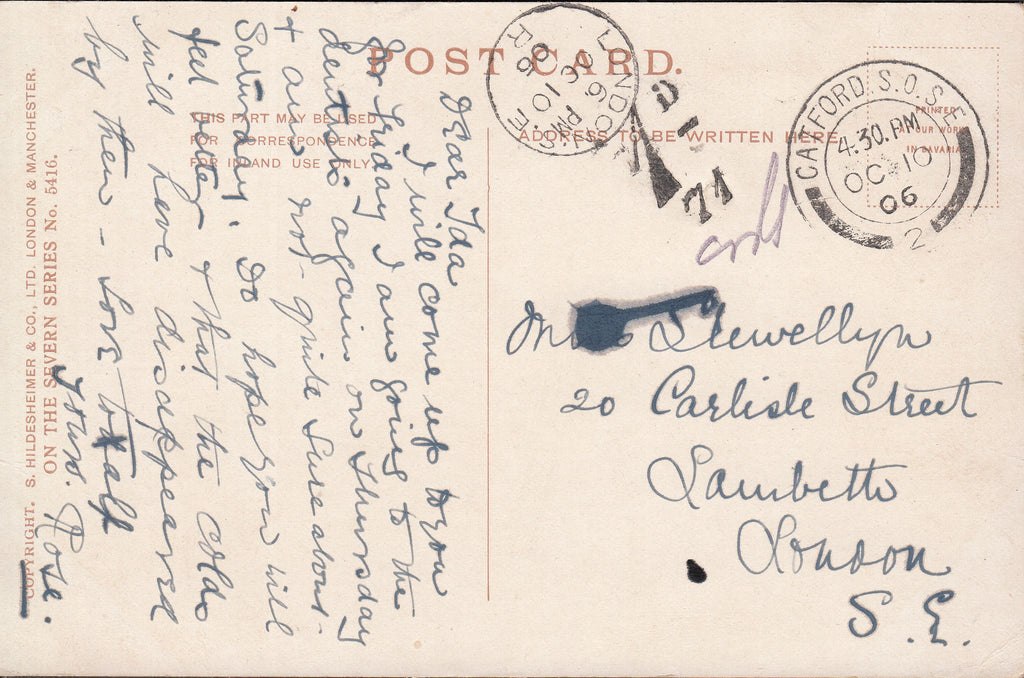 POST CARD.
THIS PART MAY BE USED
FOR CORRESPONDENCE
FOR INLAND USE ONLY
ADDRESS TO BE WRITTEN HERE
PRINTED
AT OUR WORKS
IN BAVARIA
LONDON S.E
6 PM
OC 10
06
R
CATFORD. S.O. S.E
4.30. PM
OC 10
06
2
71
Dear Ida
I will come up to you
for Friday I am going to the
dentist's again on Thursday
+ am not quite sure about
Saturday. Do hope you will
feel better + that the colds
will have disappeared
by then - Love to all
Yours. Rose.
Llewellyn
20 Carlisle Street
Lambeth
London
S.E.
COPYRIGHT. S. HILDESHEIMER & CO., LTD. LONDON & MANCHESTER.
ON THE SEVERN SERIES No. 5416.